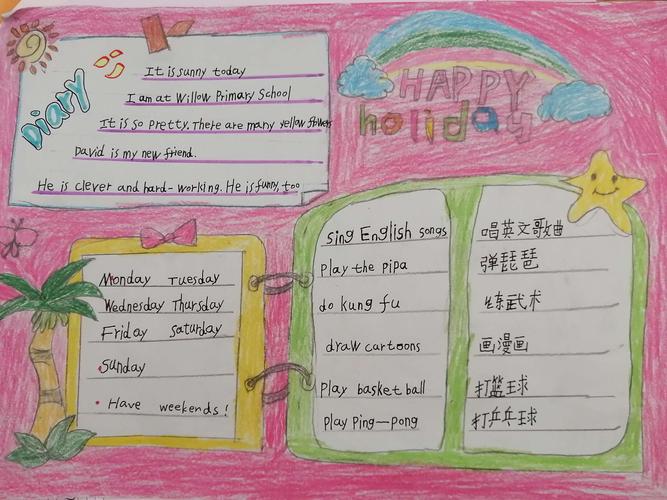 Diary
It is sunny today
I am at Willow Primary School
It is so pretty. There are many yellow flowers
David is my new friend.
He is clever and hard-working. He is funny, too
HAPPY
holiday
Monday Tuesday
Wednesday Thursday
Friday Saturday
Sunday
Have weekends!
sing English songs 唱英文歌曲
play the pipa 弹琵琶
do kung fu 练武术
draw cartoons 画漫画
play basketball 打篮球
play Ping-pong 打乒乓球